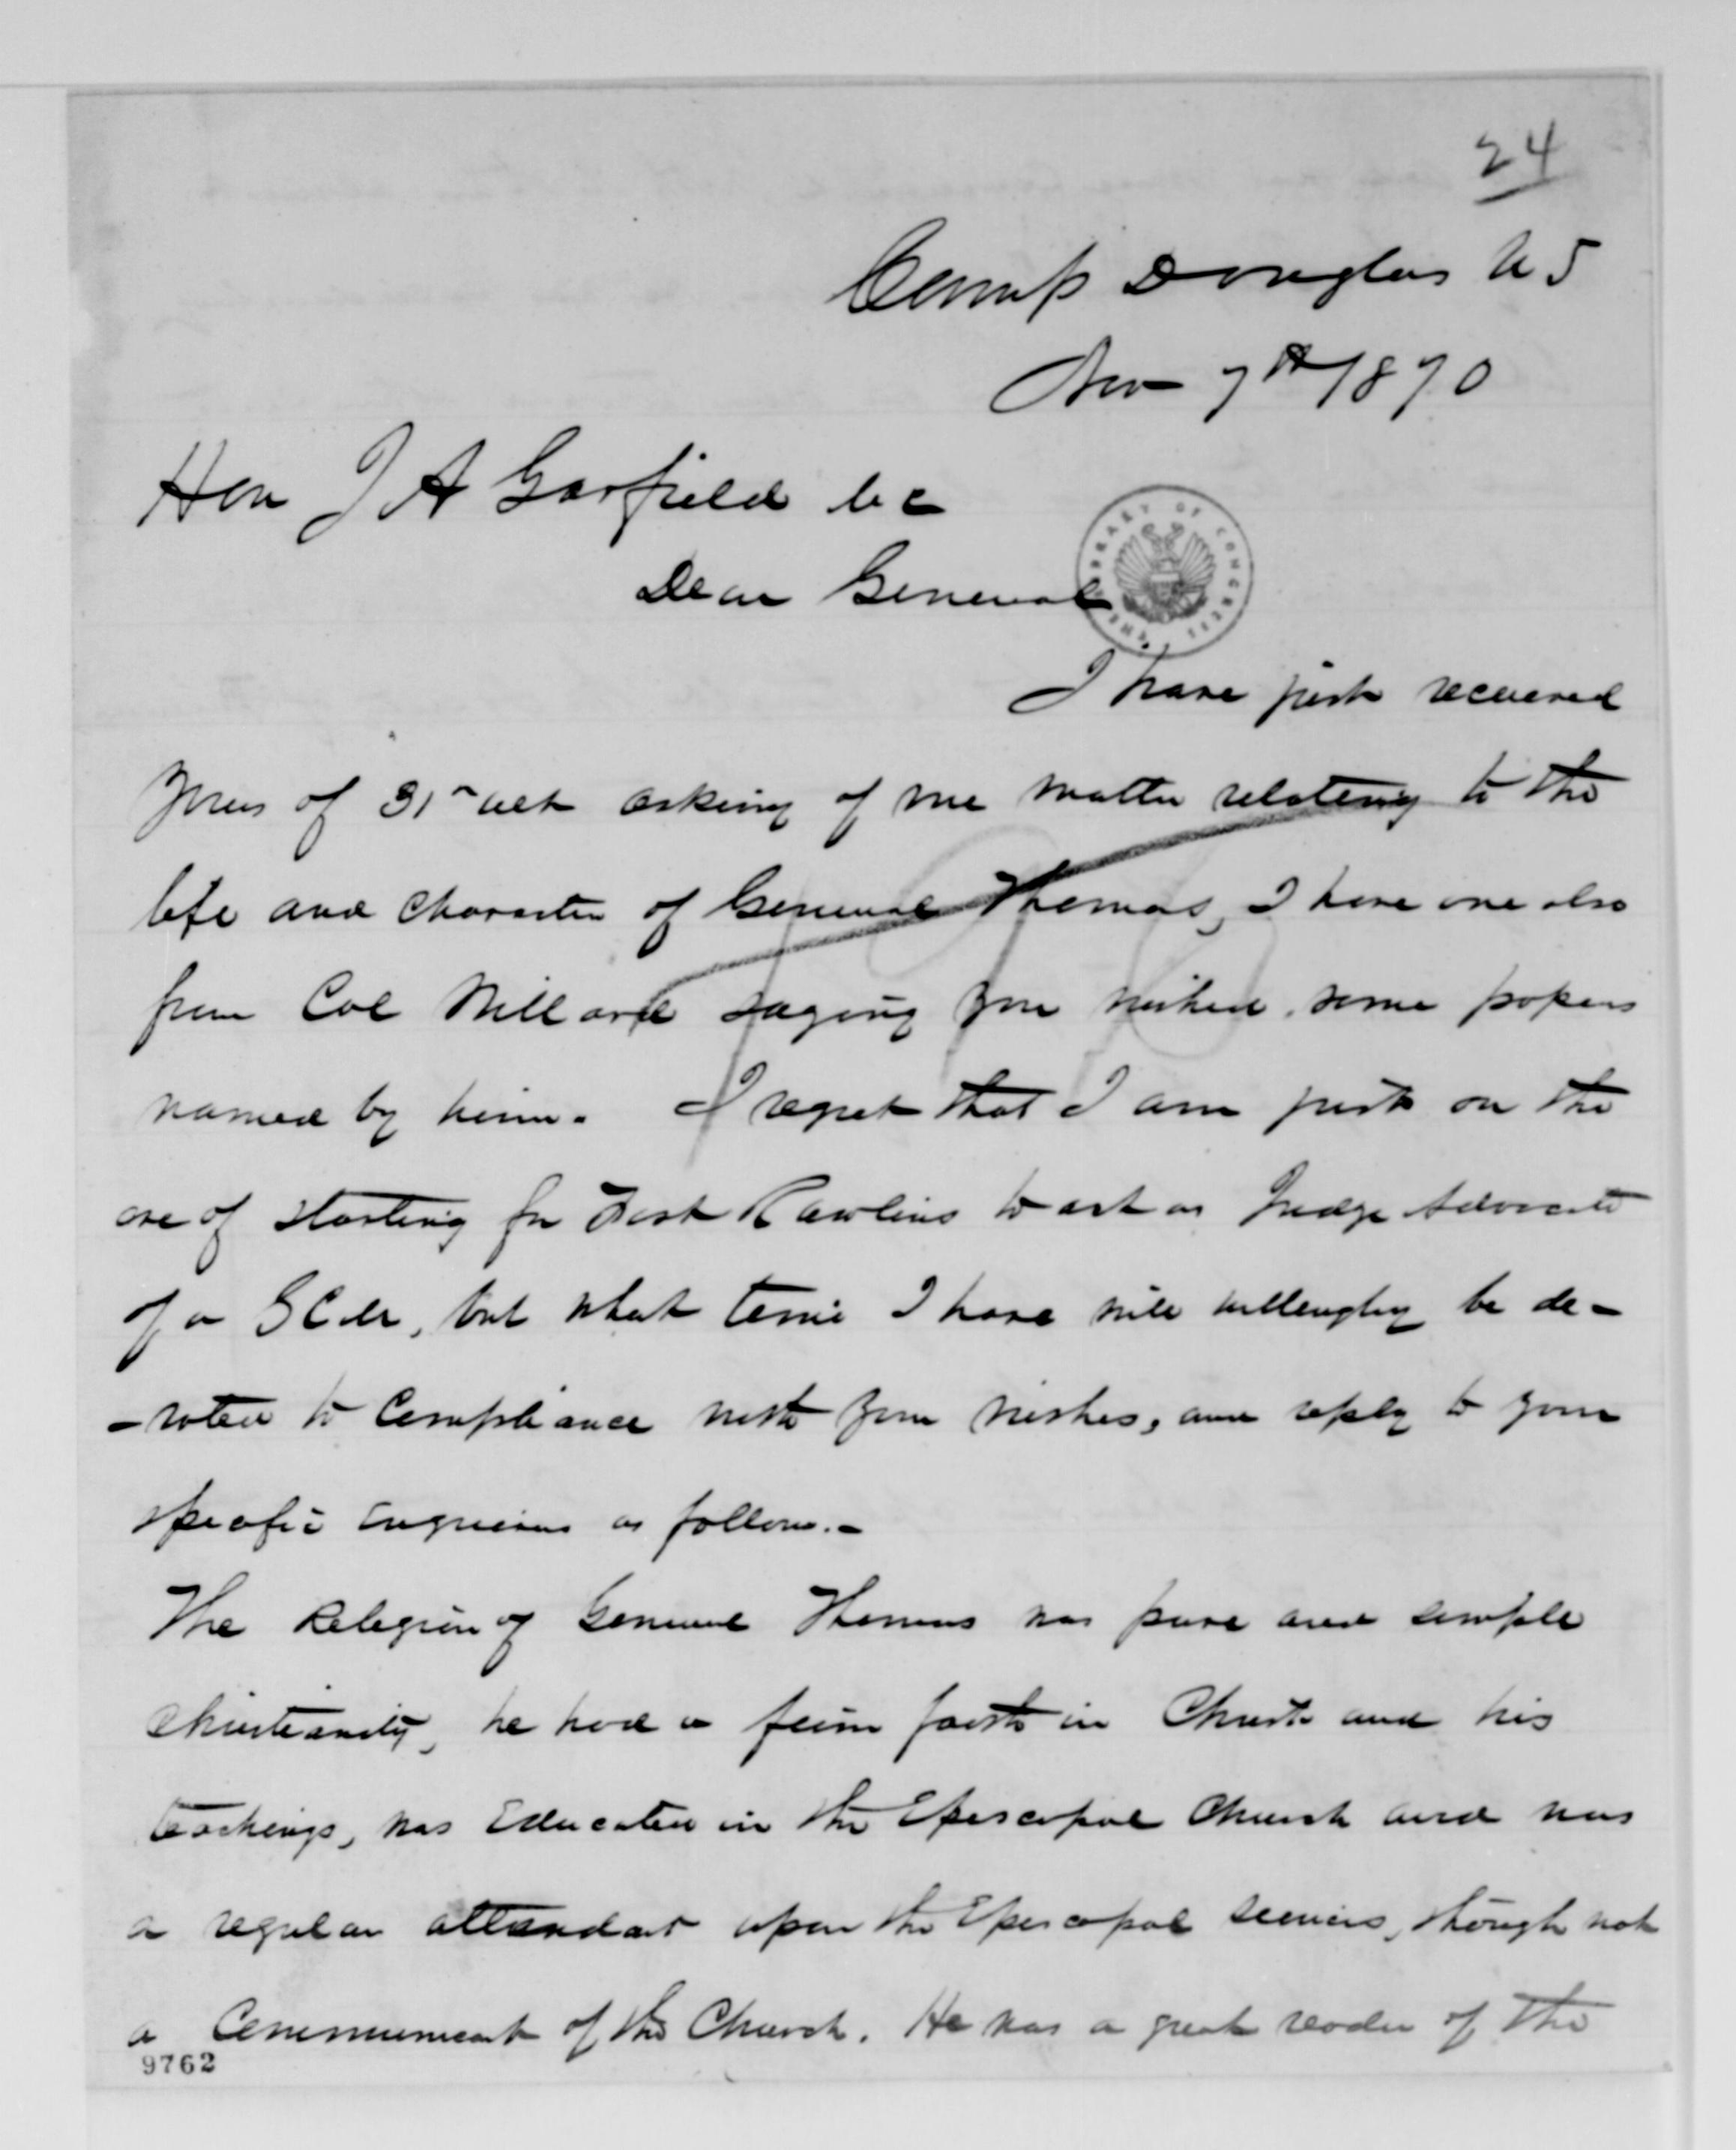 24
Camp Douglas U T
Nov 7th 1870
Hon J A Garfield M C
Dear General
LIBRARY OF CONGRESS
I have just received
yours of 31st ult asking of me matter relating to the
life and character of General Thomas, I have one also
from Col Willard saying you wished some papers
named by him. I regret that I am just on the
eve of starting for Fort Rawlins to act as Judge Advocate
of a G C M, but what time I have will willingly be de-
-voted to compliance with your wishes, and reply to your
specific enquiries as follows.-
The Religion of General Thomas was pure and simple
Christianity, he had a firm faith in Christ and his
teachings, was Educated in the Episcopal Church and was
a regular attendant upon the Episcopal services, though not
a Communicant of the Church. He was a great reader of the
9762